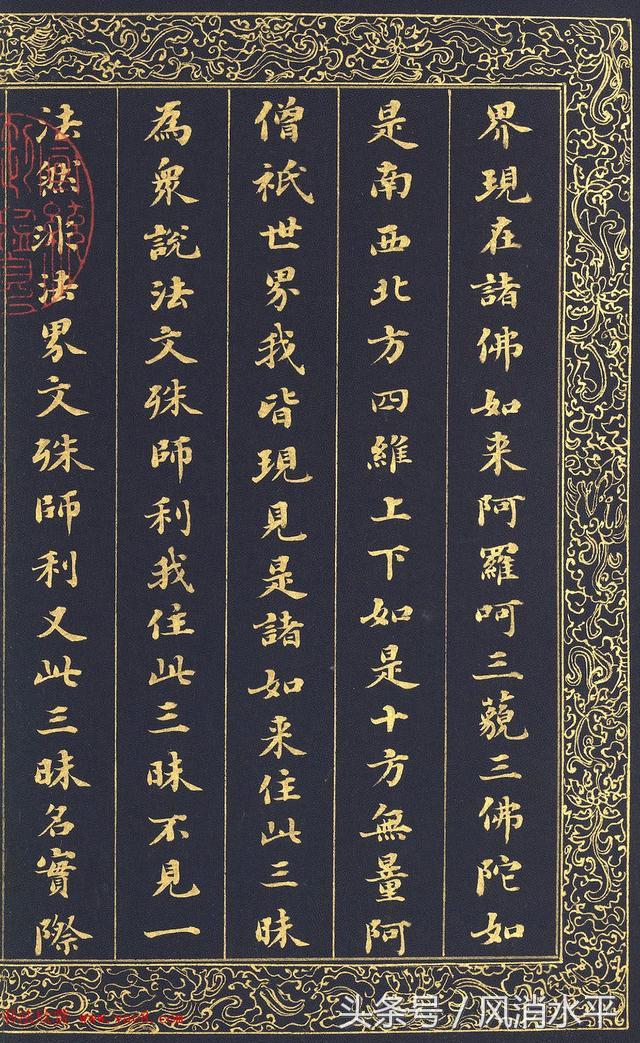 界現在諸佛如来阿羅呵三藐三佛陀如
是南西北方四維上下如是十方無量阿
僧祇世界我皆現見是諸如来住此三昧
為衆說法文殊師利我住此三昧不見一
法然非法界文殊師利又此三昧名實際
头条号 / 风消水平